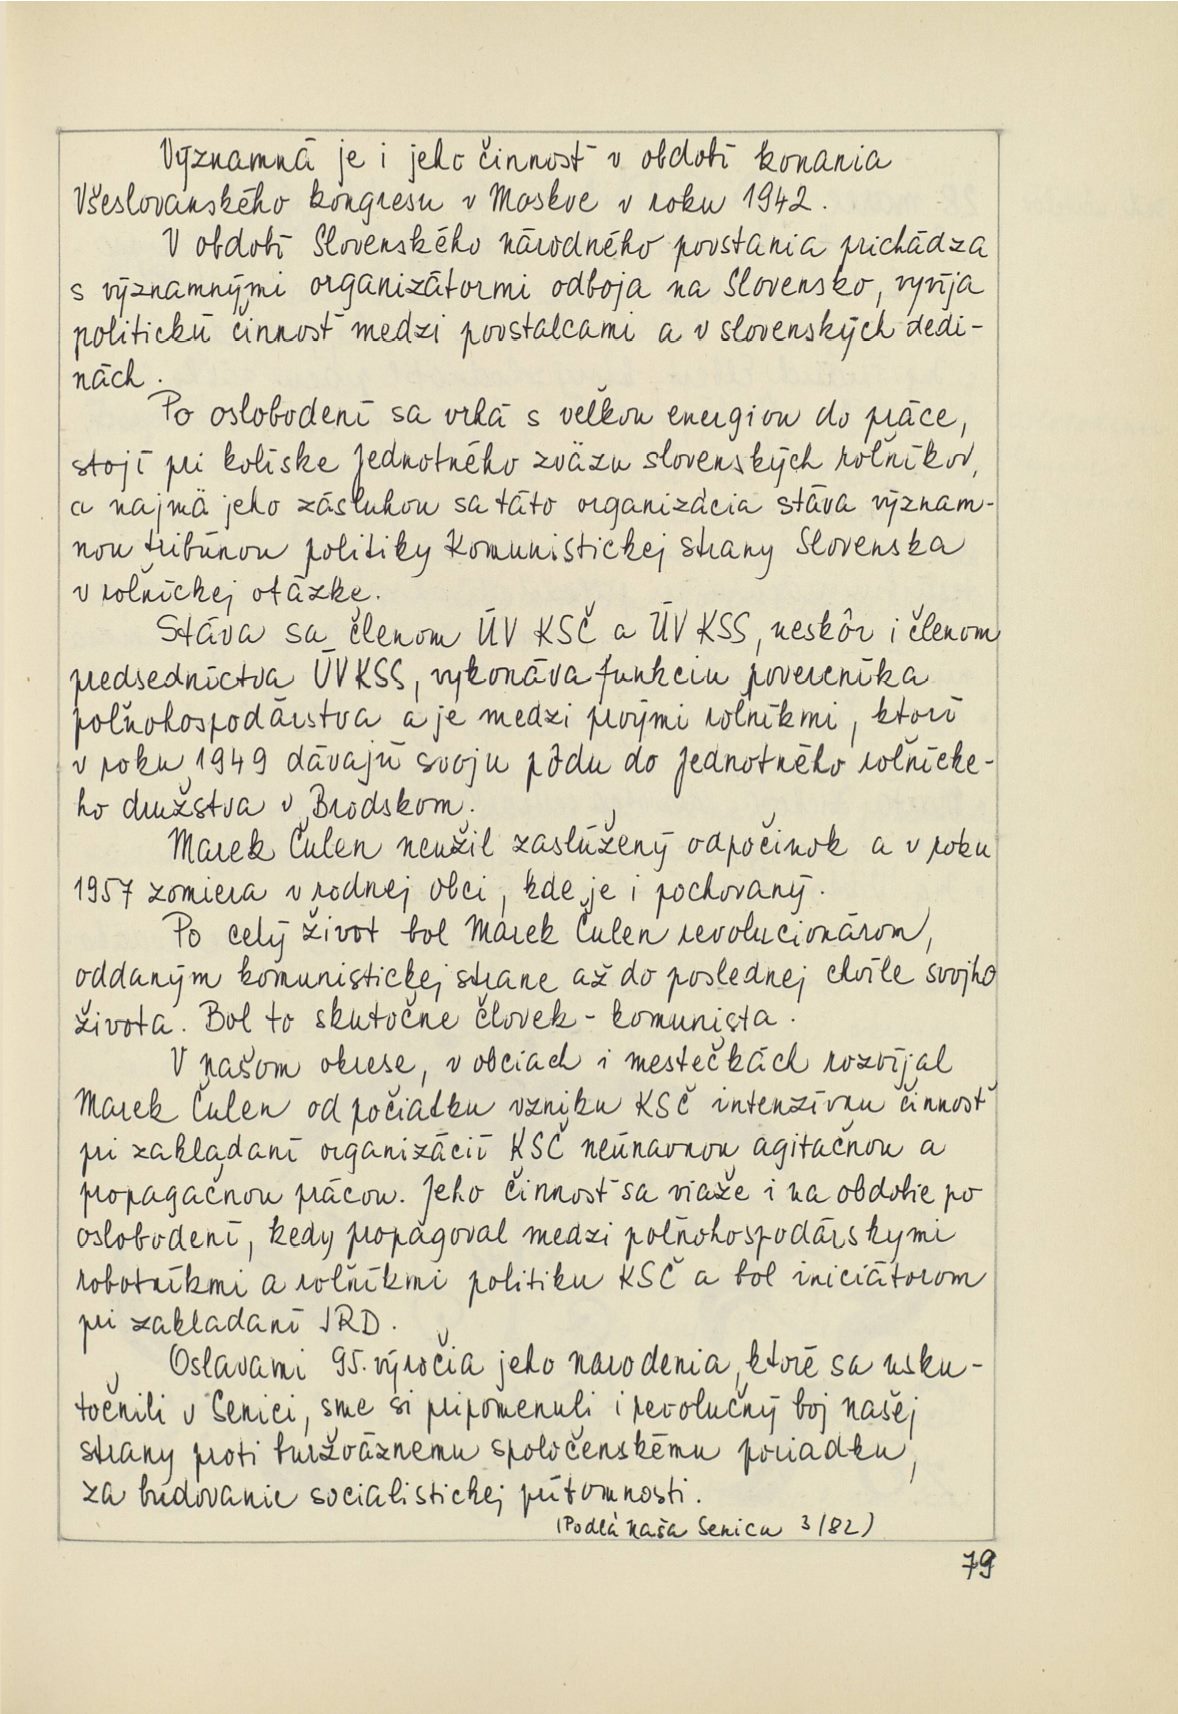 Významná je i jeho činnosť v období konania
Všeslovanského kongresu v Moskve v roku 1942.
V období Slovenského národného povstania prichádza
s významnými organizátormi odboja na Slovensko, vyvíja
politickú činnosť medzi povstalcami a v slovenských dedi-
nách.
Po oslobodení sa vrhá s veľkou energiou do práce,
stojí pri kolíske Jednotného zväzu slovenských roľníkov,
a najmä jeho zásluhou sa táto organizácia stáva význam-
nou tribúnou politiky Komunistickej strany Slovenska
v roľníckej otázke.
Stáva sa členom ÚV KSČ a ÚV KSS, neskôr i členom
predsedníctva ÚV KSS, vykonáva funkciu povereníka
poľnohospodárstva a je medzi prvými roľníkmi, ktorí
v roku 1949 dávajú svoju pôdu do Jednotného roľnícke-
ho družstva v Brodskom.
Marek Čulen neužil zaslúžený odpočinok a v roku
1957 zomiera v rodnej obci, kde je i pochovaný.
Po celý život bol Marek Čulen revolucionárom,
oddaným komunistickej strane až do poslednej chvíle svojho
života. Bol to skutočne človek - komunista.
V našom okrese, v obciach i mestečkách rozvíjal
Marek Čulen od počiatku vzniku KSČ intenzívnu činnosť
pri zakladaní organizácií KSČ neúnavnou agitačnou a
propagačnou prácou. Jeho činnosť sa viaže i na obdobie po
oslobodení, kedy propagoval medzi poľnohospodárskymi
robotníkmi a roľníkmi politiku KSČ a bol iniciátorom
pri zakladaní JRD.
Oslavami 95. výročia jeho narodenia, ktoré sa usku-
točnili v Senici, sme si pripomenuli i revolučný boj našej
strany proti buržoáznemu spoločenskému poriadku,
za budovanie socialistickej prítomnosti.
(Podľa Naša Senica 3/82)
79